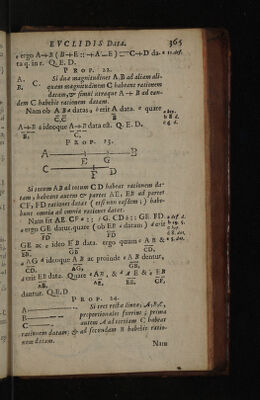 EVCLIDIS Data. 365
ergo A+B (B+E::+A—E) C+D da-
ta q. in r. Q. E. D.
PROP. 22.
A. Si duæ magnitudines A,B ad aliam ali-
B. C. quam magnitudinem C habeant rationem
datam, & simul utraque A + B ad ean-
dem C habebit rationem datam.
Nam ob A B datas, erit A data. quare
C, C B
A+B ideoque A+B data est. Q. E. D.
B, C,
PROP. 23.
A B
E G
C D
F
Si totum AB ad totum CD habeat rationem da-
tam; habeant autem & partes AE, EB ad partes
CF, FD rationes datas (etsi non easdem;) habe-
bunt omnia ad omnia rationes datas.
Nam sit AE. CF :: AG. CD :: GE. FD.
ergo GE datur. quare (ob EB datam) erit
FD FD
GE ac ideo EB data. ergo quum AB &
EB, GB CD,
AG ideoque AB ac proinde AB dentur,
CD, AG, GB
erit EB data. Quare AE, & AE & EB
AB, EB, CF, FD
dantur. Q. E. D.
PROP. 24.
A Si tres rectæ lineæ, A, B, C,
B proportionales fuerint; prima
C autem A ad tertiam C habeat
rationem datam; & ad secundam B habebit ratio-
nem datam.
Nam